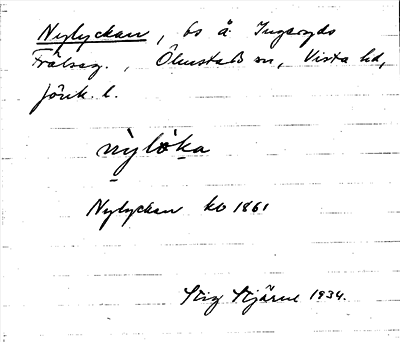 Nylyckan, bs å Ingaryds
Frälseg., Ölmstads sn, Vista hd,
Jönk. l.
nỳlòka
Nylyckan kb 1861
Stig Stjärne 1934.